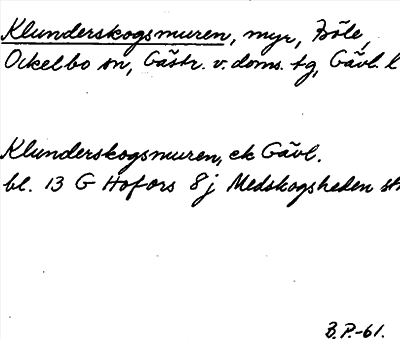 Klunderskogsmuren, myr, Böle,
Ockelbo sn, Gästr. v. doms. tg, Gävl. l
Klunderskogsmuren, ek Gävl.
bl. 13 G Hofors 8 j Medskogsheden st
B.P.-61.